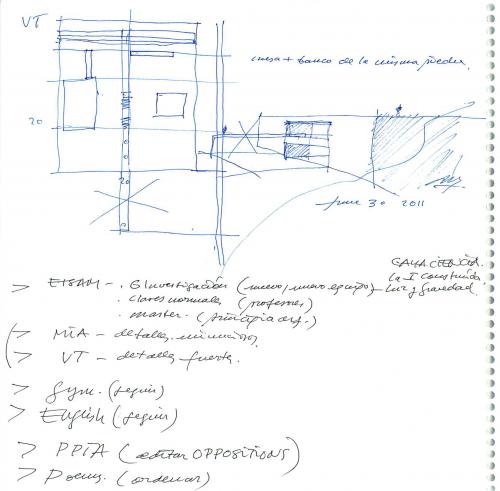 VT
mesa + banco de la misma piedra.
20
20
june 30 2011
GAYA CIENCIA.
la I construida
luz y gravedad.
> ETSAM - . G Investigación (nuevo, nuevo equipo)
. clases normales (profesores)
. master. (principia arq.)
> MIA - detalles minuciosos.
> VT - detalles fuerte.
> Gym. (seguir)
> English (seguir)
> PPTA (editar OPPOSITIONS)
> Poems. (ordenar)